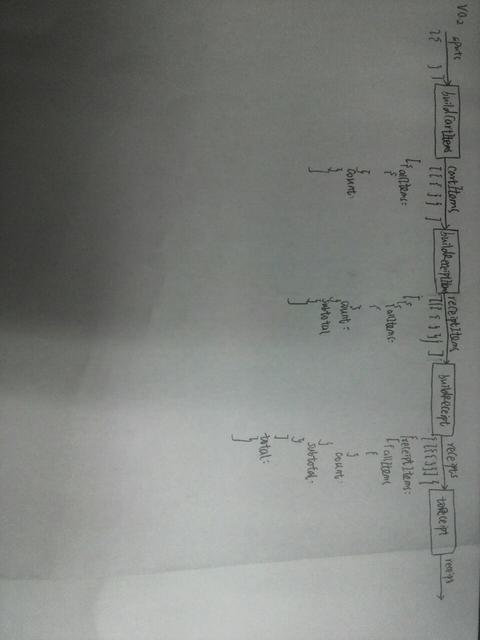 V02
inputs
[{ } ]
buildCartItems
cartItems
[{ { } } ]
[{
allItems:
{
}
count:
}
]
buildReceiptItems
receiptItems
[{ { } } ]
[{
allItems:
{
}
count:
subtotal
}
]
buildReceipt
receipts
{[{ { } }] }
{receiptItems:
[{ allItems
{
}
count:
subtotal:
}
]
total:
}
toReceipt
receipt